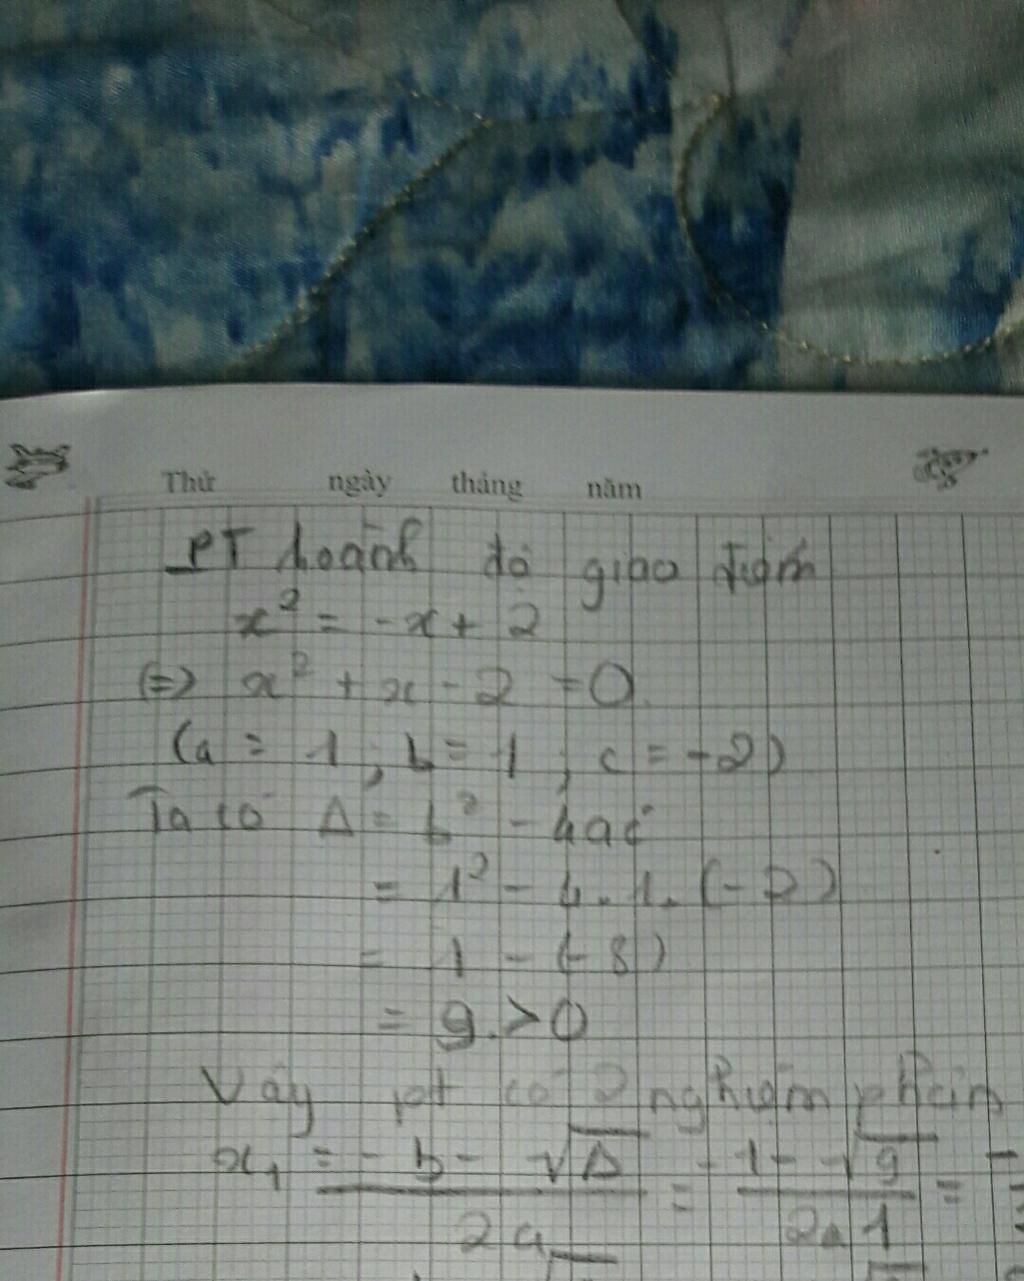 Thứ ngày tháng năm
PT hoành độ giao điểm
x² = -x + 2
(=) x² + x - 2 = 0
(a = 1 ; b = 1 ; c = -2)
Ta có Δ = b² - 4ac
= 1² - 4.1.(-2)
= 1 - (-8)
= 9 > 0
Vậy pt có 2 nghiệm phân
x₁ = -b - √Δ / 2a = -1 - √9 / 2.1 =